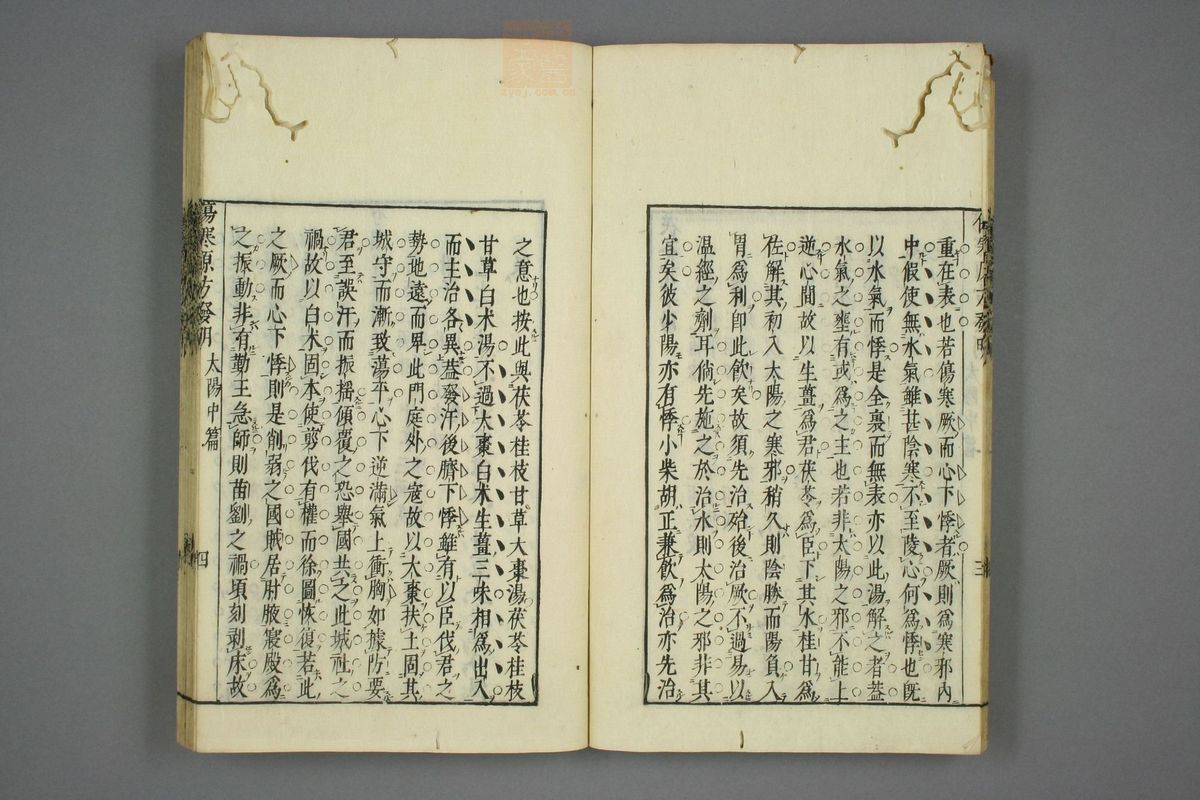 重在表也若傷寒厥而心下悸者厥則為寒邪內
中假使無水氣雖甚陰寒不至陵心何為悸也旣
以水氣而悸是全裏而無表亦以此湯解之者葢
水氣之壅有或為之主也若非太陽之邪不能上
逆心間故以生薑為君茯苓為臣下其水桂甘為
佐解其初入太陽之寒邪稍久則陰勝而陽負入
胃為利即此飲矣故須先治殆後治厥不過易以
溫經之劑耳倘先施之於治水則太陽之邪非其
宜矣彼少陽亦有悸小柴胡正兼飲為治亦先治
三
之意也按此與茯苓桂枝甘草大棗湯茯苓桂枝
甘草白朮湯不過大棗白朮生薑三味相為出入
而主治各異葢發汗後臍下悸雖有以臣伐君之
勢地遠而卑此門庭外之寇故以大棗扶土固其
城守而漸致蕩平心下逆滿氣上衝胸如據防要
君至誤汗而振揺傾覆之恐舉國共之此城社之
禍故以白朮固本使剪伐有權而徐圖恢復若此
之厥而心下悸則是削弱之國賊居肘腋寢殿為
之振動非有勤王急師則苗劉之禍頃刻剥床故
傷寒原方發明 太陽中篇 四
zyej.com.cn